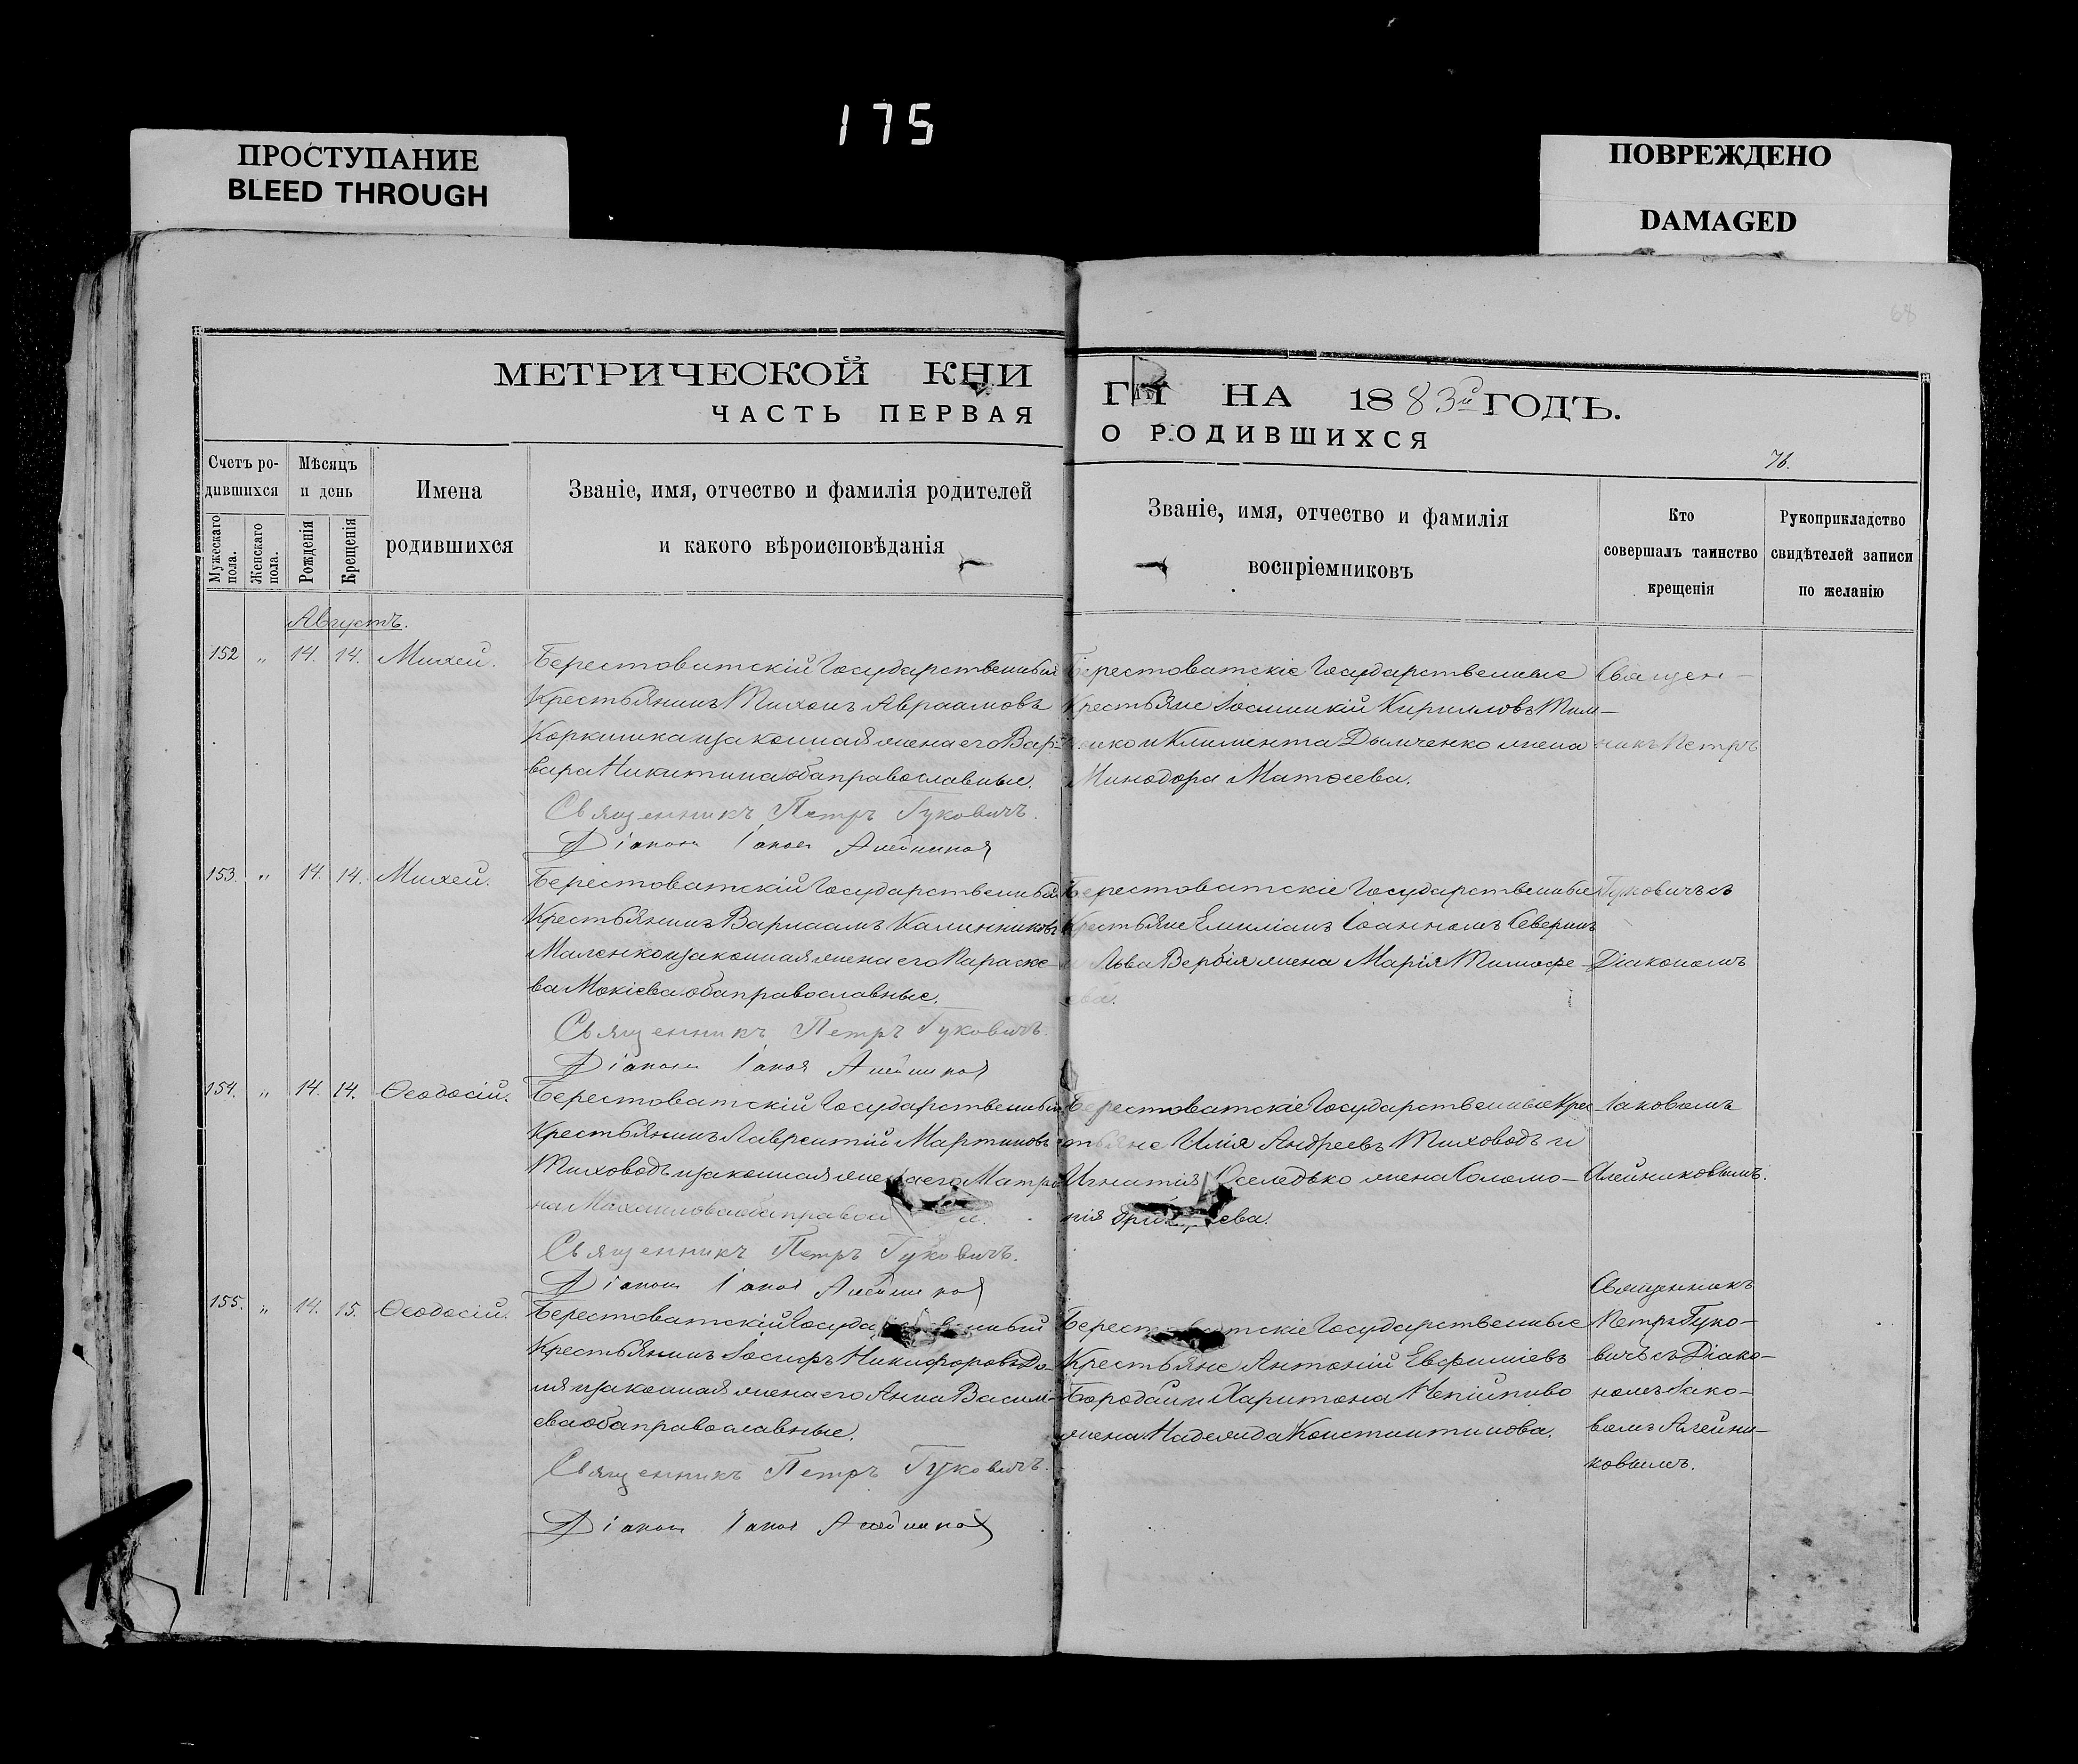 175
ПРОСТУПАНИЕ
BLEED THROUGH
ПОВРЕЖДЕНО
DAMAGED
68
МЕТРИЧЕСКОЙ КНИ
ЧАСТЬ ПЕРВАЯ
ГИ НА 1883й ГОДЪ.
О РОДИВШИХСЯ
76.
Счетъ ро-
дившихся
Мужескаго пола.
Женскаго пола.
Мѣсяцъ
и день
Рожденія
Крещенія
Имена
родившихся
Званіе, имя, отчество и фамилія родителей
и какого вѣроисповѣданія
Званіе, имя, отчество и фамилія
воспріемниковъ
Кто
совершалъ таинство
крещенія
Рукоприкладство
свидѣтелей записи
по желанію
Августъ.
152 " 14. 14. Михей.
Берестоватскій Государственный
Крестьянинъ Тихонъ Авраамовъ
и законная жена его Вар-
вара Никитина оба православные.
Священникъ Петръ Гуковичъ.
Діаконъ Іаковъ Алейниковъ
Берестоватскіе Государственные
Крестьяне Іоанникій Кирилловъ Тим-
и Климента Дымченко жена
Минодора Матѳеева.
Священ-
никъ Петръ
153. " 14. 14. Михей.
Берестоватскій Государственный
Крестьянинъ Варлаамъ Калинниковъ
Маленко и законная жена его Параске-
ва Мокіева оба православные.
Священникъ Петръ Гуковичъ.
Діаконъ Іаковъ Алейниковъ
Берестоватскіе Государственные
Крестьяне Емиліанъ Іоанновъ Северинъ
и Льва Вербія жена Марія Тимофе-
ева.
Гуковичъ съ
Діакономъ
154. " 14. 14. Ѳеодосій.
Берестоватскій Государственный
Крестьянинъ Лаврентій Мартиновъ
Тиховодъ и законная жена его Матро
на Михаилова оба правосл
Священникъ Петръ Гуковичъ.
Діаконъ Іаковъ Алейниковъ
Берестоватскіе Государственные Крес-
тьяне Илія Андреевъ Тиховодъ и
Игнатія Оселедько жена Соломо-
нія
Іаковомъ
Алейниковымъ.
155. " 14. 15. Ѳеодосій.
Берестоватскій Государственный
Крестьянинъ Іосифъ Никифоровъ До-
ля и законная жена его Анна Васил-
ева оба православные.
Священникъ Петръ Гуковичъ.
Діаконъ Іаковъ Алейниковъ
Берестоватскіе Государственные
Крестьяне Антоній Евфиміевъ
Бородай и Харитона Непійпиво
жена Надежда Константинова.
Священникъ
Петръ Гуко-
вичъ съ Діако-
номъ Іако-
вомъ Алейни-
ковымъ.